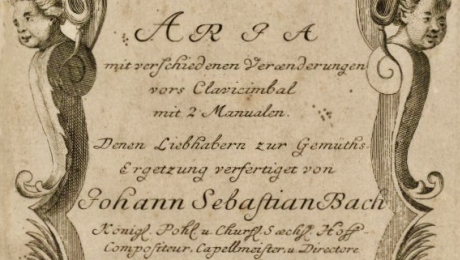 ARIA
mit verschiedenen Verænderungen
vors Clavicimbal
mit 2 Manualen.
Denen Liebhabern zur Gemüths-
Ergetzung verfertiget von
Johann Sebastian Bach
Königl. Pohl. u. Churfl. Sæchs. Hoff-
Compositeur, Capellmeister, u. Directore